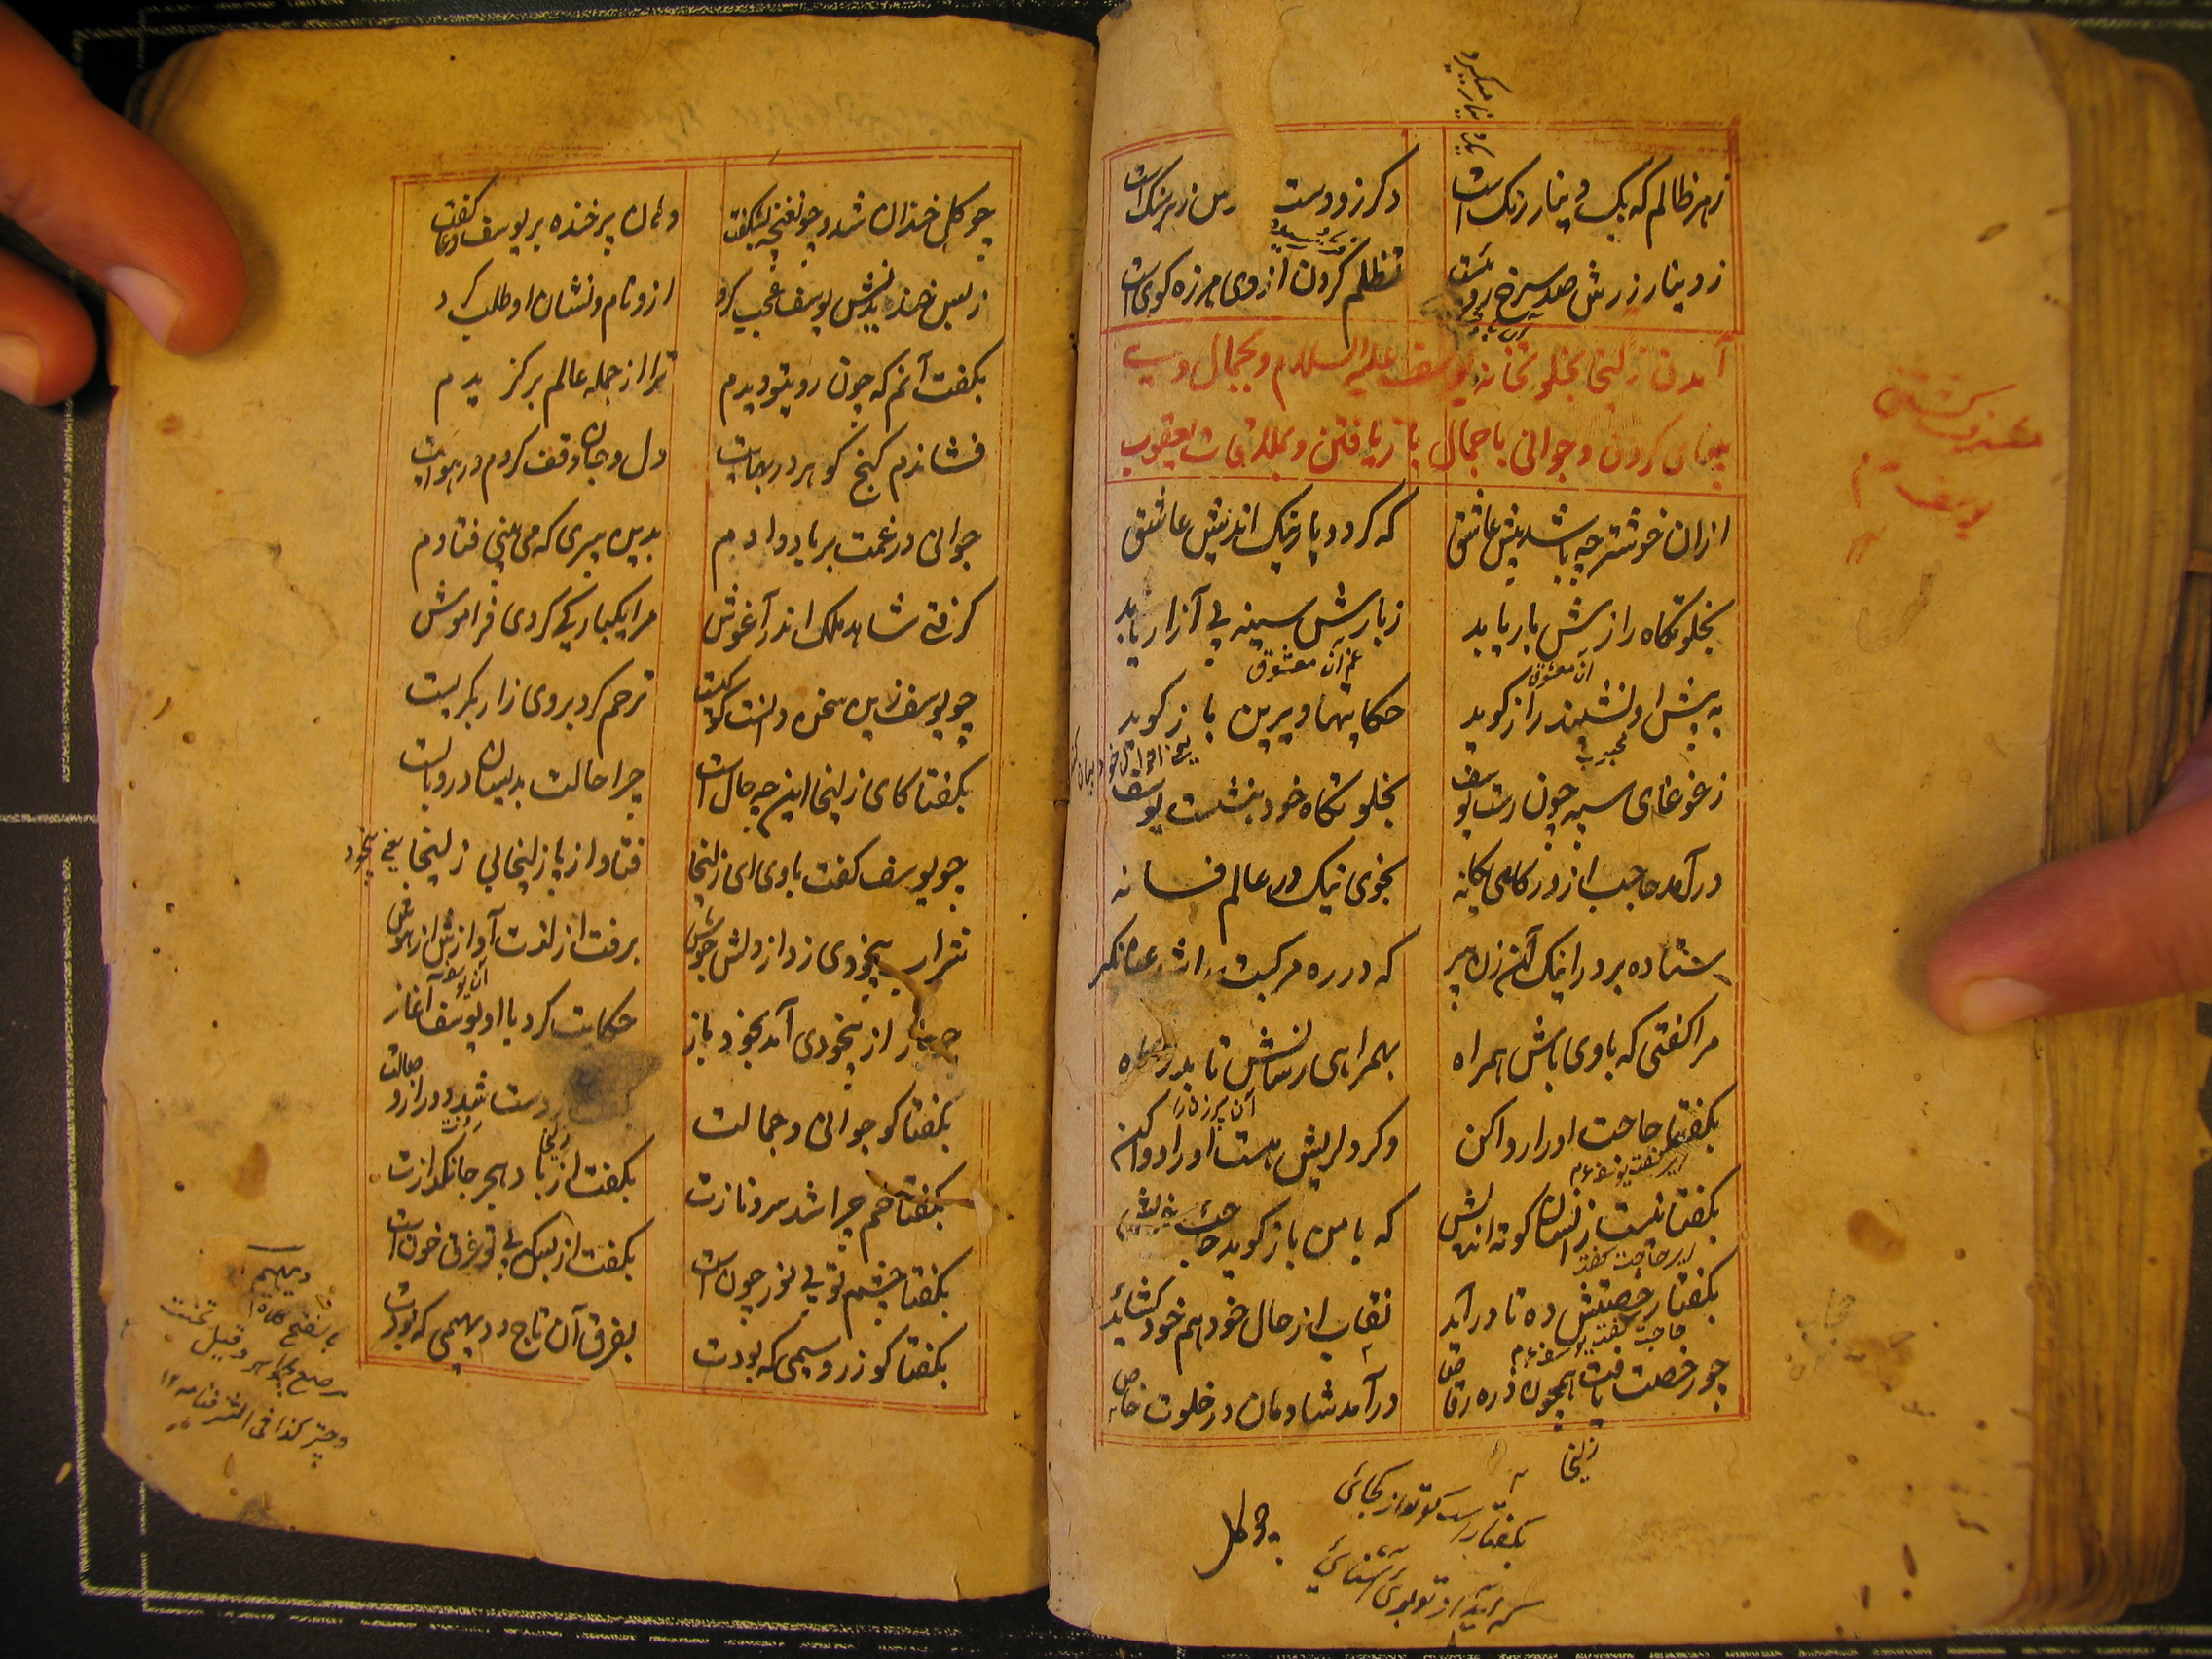 ز هر ظالم که یک دینار زنک است
دکر زو دست زهر سنک است
ز دینار زرش صد سرخ رویست
تظلم کردن از وی هرزه کوی است
آمدن زلیخا بخلوتخانه یوسف علیه السلام و بجمال وی
بینای کردن و جوانی با جمال باز یافتن
ازان خوشتر چه باشد پیش عاشق
که کردد یار نیک اندیش عاشق
بخلوتکاه رازش بار یابد
ز بارش سینه بی آزار یابد
به پیش او نشیند راز کوید
حکایتهاء دیرین باز کوید
ز غوغای سپه چون رست یوسف
بخلوتکاه خود بنشست یوسف
درآمد حاجب از در کای یکانه
بخوی نیک در عالم فسانه
ستاده بر در اینک آن زن پیر
که در ره مرکبت را شد عنانکیر
مرا کفتی که با وی باش همراه
بهمراهی رسانش تا بدرکاه
بکفتا حاجت او را روا کن
وکر دردیش هست او را دوا کن
بکفتا نیست زانسان کوته اندیش
که با من باز کوید حاجت خویش
بکفتا رخصتش ده تا درآید
نقاب از حال خود هم خود کشاید
چو رخصت یافت همچون ذره رقاص
درآمد شادمان در خلوت خاص
زلیخا
بکفتا راست کو تو از کجائی
که آید از تو بوی آشنایی
چو کل
چو کل خندان شد و چو غنچه بشکفت
دهان پر خنده بر یوسف دعا کفت
ز بس خندیدنش یوسف عجب کرد
ازو نام و نشان او طلب کرد
بکفت آنم که چون روی تو دیدم
ترا از جمله عالم برکزیدم
فشاندم کنج کوهر در بهایت
دل و جان وقف کردم در هوایت
جوانی در غمت بر باد دادم
بدین پیری که می بینی فتادم
کرفتی شاهد ملک اندر آغوش
مرا یکبارکی کردی فراموش
چو یوسف زین سخن دانست کو کیست
ترحم کرد و بر وی زار بکریست
بکفتا کای زلیخا این چه حال است
چرا حالت بدینسان در وبالست
چو یوسف کفت با وی ای زلیخا
فتاد از پا زلیخا بی زلیخا
شراب بیخودی زد از دلش جوش
برفت از لذت آوازش از هوش
چو باز از بیخودی آمد بخود باز
حکایت کرد با او یوسف آغاز
بکفتا کو جوانی و جمالت
بکفت از دست شد دور از وصالت
بکفتا خم چرا شد سرو نازت
بکفت از بار هجر جانکدازت
بکفتا چشم تو بی نور چون است
بکفت از بس که بی تو غرق خون است
بکفتا کو زر و سیمی که بودت
بفرق آن تاج و دیهیمی که بودت
دیهیم
بالفتح کلاه
مرصع بجواهر و قیل تخت
و چتر کذا فی الشرفنامه ۱۲